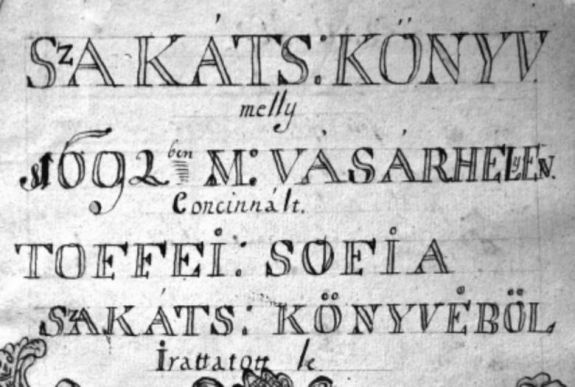 SzAKÁTS: KÖNYV
melly
1692ben M: VÁSÁRHELyEN.
Concinnált.
TOFFEI: SOFIA
SzAKÁTS: KÖNYVÉBÖL
Irattatott le